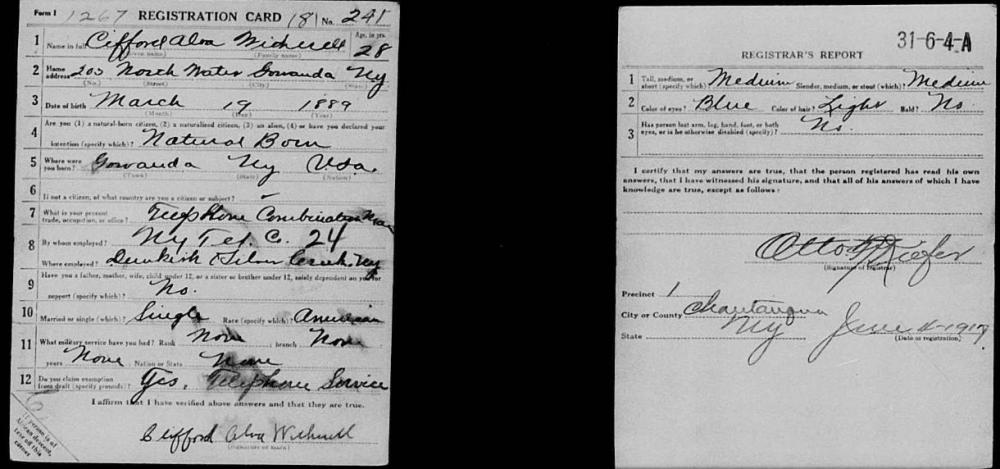 Form 1 1267 REGISTRATION CARD 181 No. 241
1 Name in full Clifford Alva Witherell Age, in yrs. 28
(Given name) (Family name)
2 Home address 203 North Water Gowanda Ny
(No.) (Street) (City) (State)
3 Date of birth March 19 1889
(Month) (Day) (Year)
4 Are you (1) a natural-born citizen, (2) a naturalized citizen, (3) an alien, (4) or have you declared your
intention (specify which)? Natural Born
5 Where were you born? Gowanda Ny Usa.
(Town) (State) (Nation)
6 If not a citizen, of what country are you a citizen or subject?
7 What is your present trade, occupation, or office? Telephone Combination Man
8 By whom employed? Ny Tel. Co. 24
Where employed? Dunkirk & Silver Creek, Ny
9 Have you a father, mother, wife, child under 12, or a sister or brother under 12, solely dependent on you for
support (specify which)? No.
10 Married or single (which)? Single Race (specify which)? American
11 What military service have you had? Rank None branch None
years None Nation or State None
12 Do you claim exemption from draft (specify grounds)? Yes, Telephone Service
I affirm that I have verified above answers and that they are true.
Clifford Alva Witherell
(Signature or mark)
If person is of
African descent,
tear off this
corner
31-6-4-A
REGISTRAR'S REPORT
1 Tall, medium, or short (specify which)? Medium Slender, medium, or stout (which)? Medium
2 Color of eyes? Blue Color of hair? Light Bald? No
3 Has person lost arm, leg, hand, foot, or both eyes, or is he otherwise disabled (specify)? No.
I certify that my answers are true, that the person registered has read his own
answers, that I have witnessed his signature, and that all of his answers of which I have
knowledge are true, except as follows:
Otto Kiefer
(Signature of registrar)
Precinct 1
City or County Chautauqua
State Ny June 4-1917
(Date of registration)